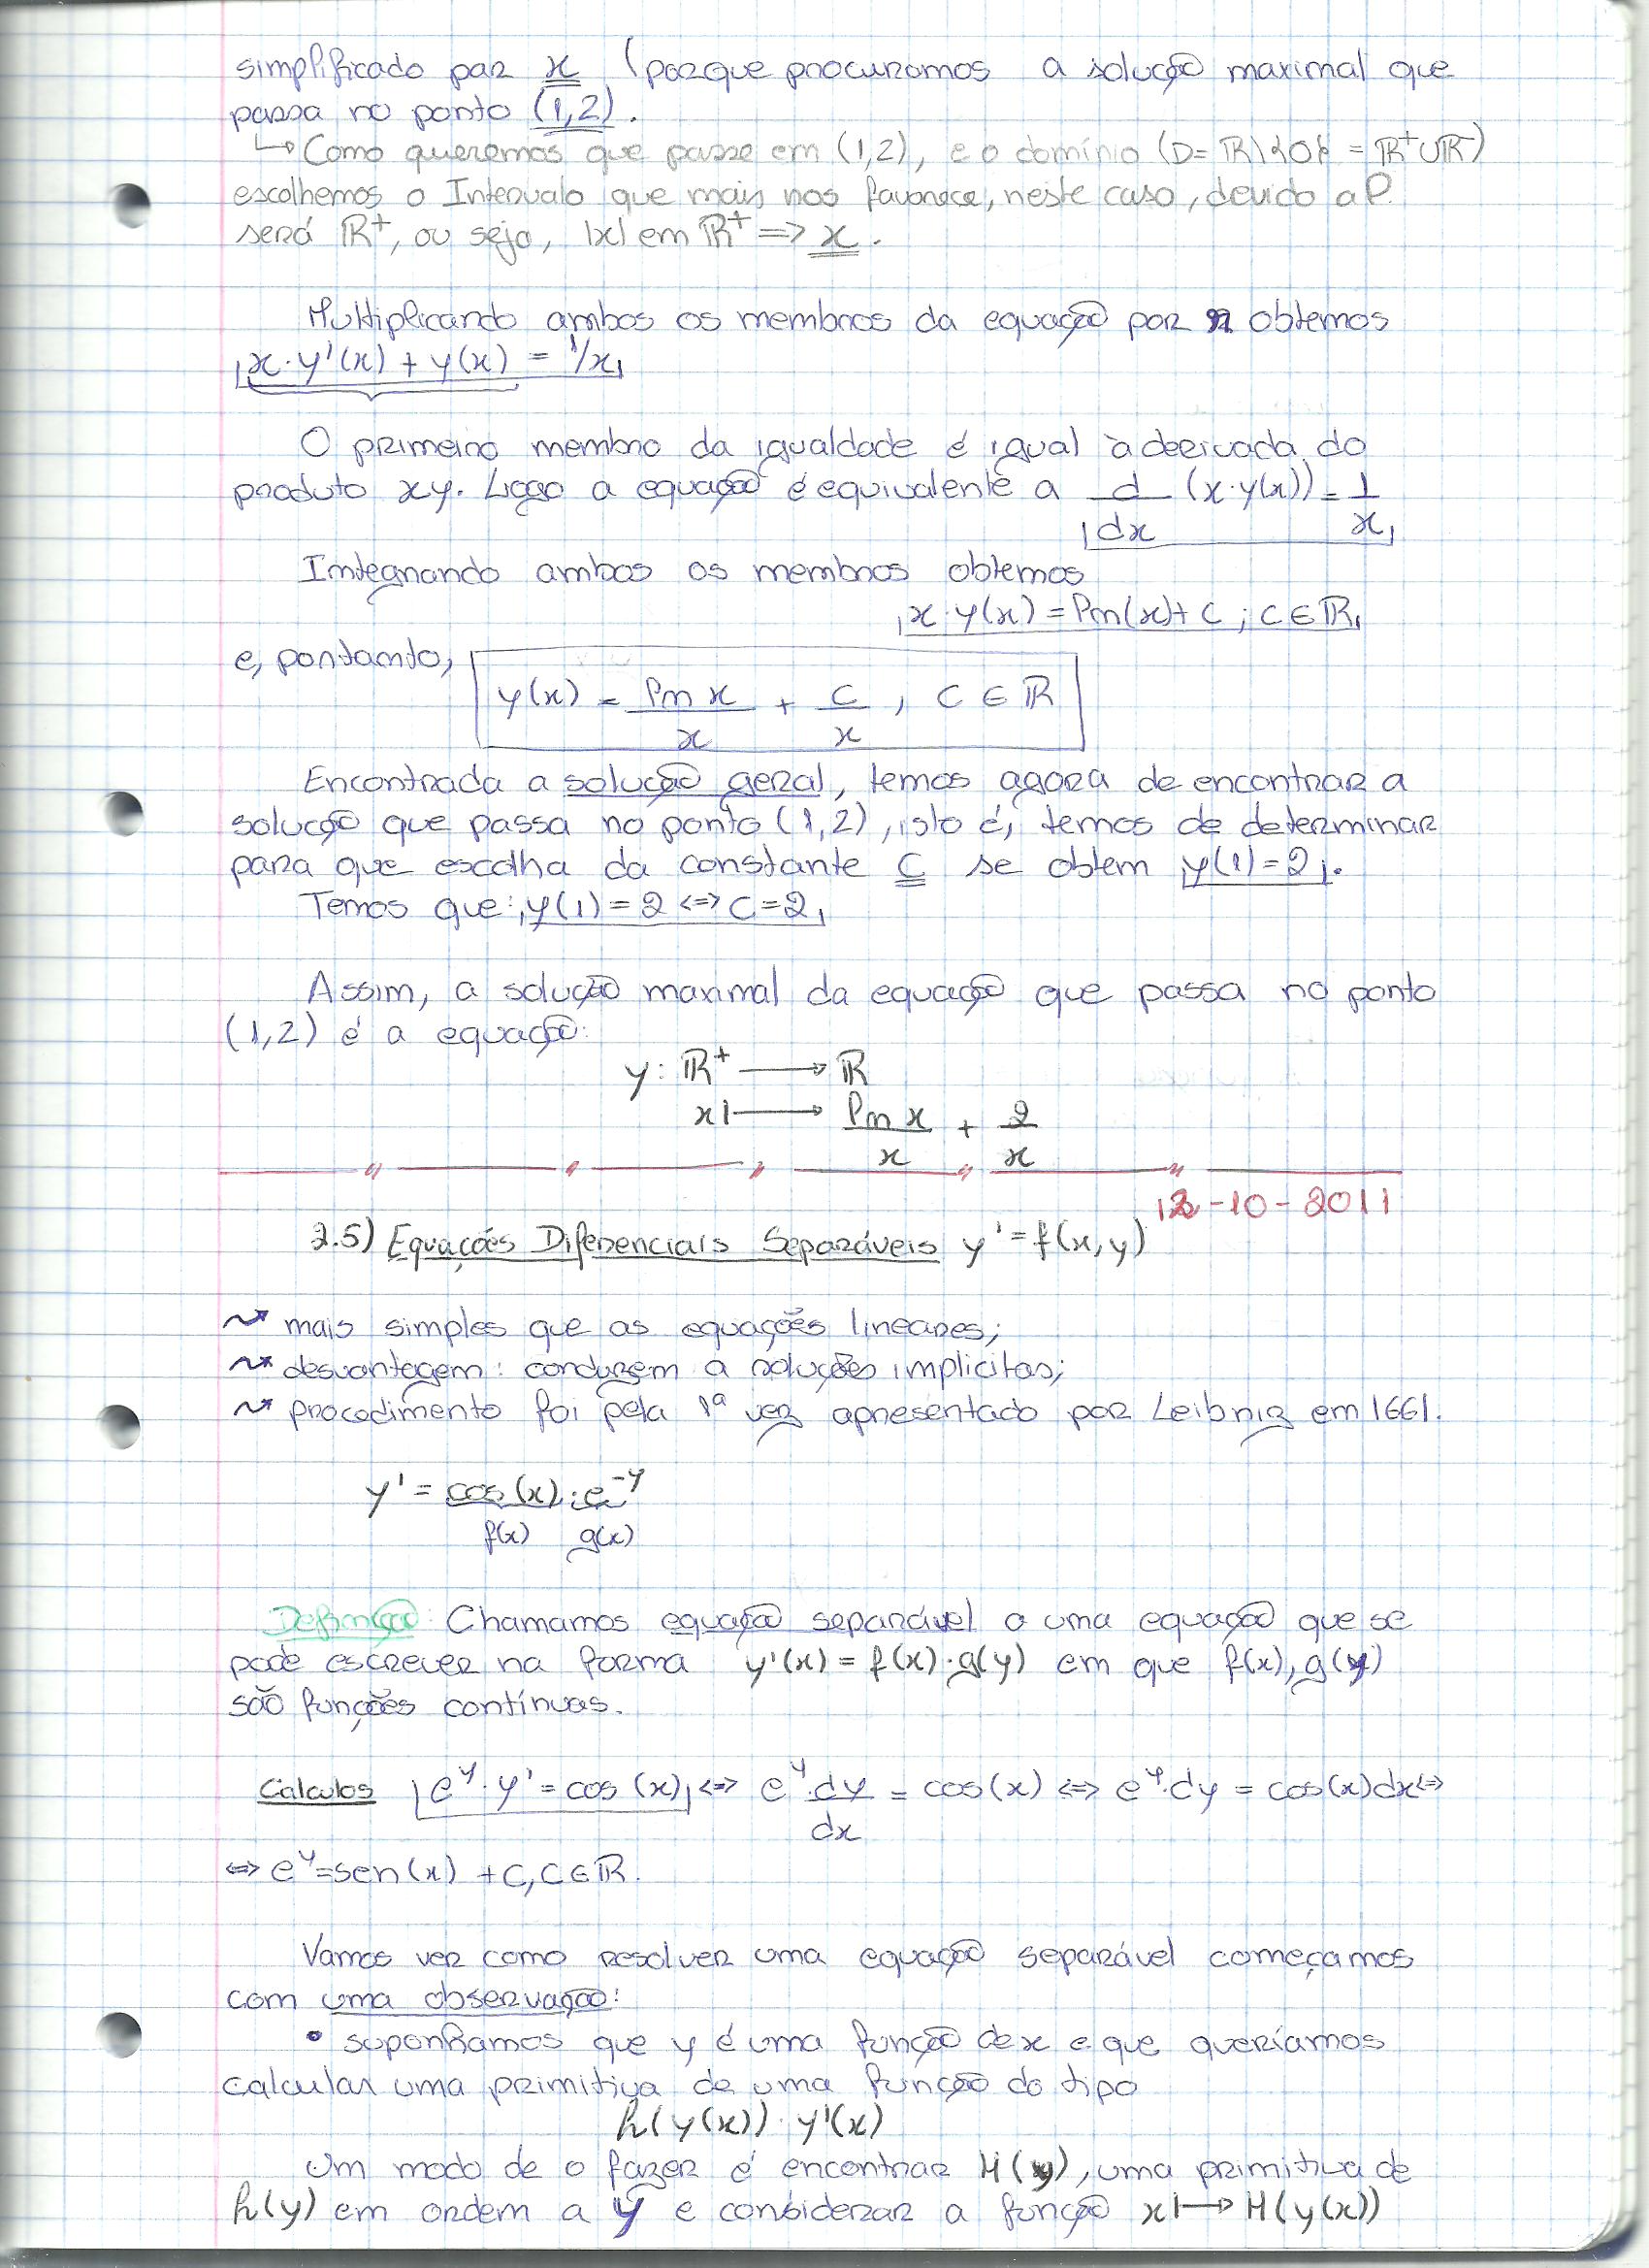 simplificado par x (porque procuramos a solução maximal que
passa no ponto (1,2).
↳ Como queremos que passe em (1,2), e o domínio (D= ℝ\{0} = ℝ⁺∪ℝ⁻)
escolhemos o Intervalo que mais nos favorece, neste caso, devido a P.
será ℝ⁺, ou seja, |x| em ℝ⁺ => x.
Multiplicando ambos os membros da equação por x obtemos
x·y'(x) + y(x) = 1/x
O primeiro membro da igualdade é igual à derivada do
produto xy. Logo a equação é equivalente a d/dx (x·y(x)) = 1/x
Integrando ambos os membros obtemos
x·y(x) = ln(x) + C ; C ∈ ℝ
e, portanto,
y(x) = ln x / x + C/x , C ∈ ℝ
Encontrada a solução geral, temos agora de encontrar a
solução que passa no ponto (1,2), isto é, temos de determinar
para que escolha da constante C se obtem y(1)=2.
Temos que: y(1)=2 <=> C=2
Assim, a solução maximal da equação que passa no ponto
(1,2) é a equação:
y: ℝ⁺ ⟶ ℝ
x ⟼ ln x / x + 2/x
-10-2011
2.5) Equações Diferenciais Separáveis y'=f(x,y)
⇝ mais simples que as equações lineares;
⇝ desvantagem: conduzem a soluções implicitas;
⇝ procedimento foi pela 1ª vez apresentado por Leibniz em 1661.
y' = cos(x)·e^-y
f(x) g(x)
Definição: Chamamos equação separável a uma equação que se
pode escrever na forma y'(x) = f(x)·g(y) em que f(x), g(y)
são funções contínuas.
Cálculos e^y·y' = cos(x) <=> e^y·dy/dx = cos(x) <=> e^y·dy = cos(x)dx <=>
<=> e^y = sen(x) + C, C∈ℝ.
Vamos ver como resolver uma equação separável começamos
com uma observação:
• suponhamos que y é uma função de x e que queríamos
calcular uma primitiva de uma função do tipo
h(y(x))·y'(x)
Um modo de o fazer é encontrar H(y), uma primitiva de
h(y) em ordem a y e considerar a função x ⟼ H(y(x))